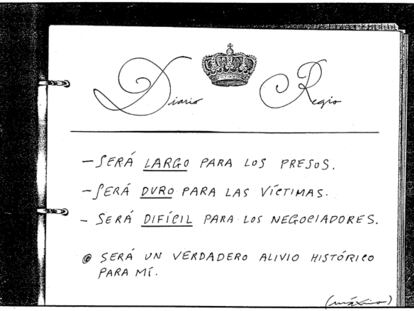 Diario Regio
– SERÁ LARGO PARA LOS PRESOS.
– SERÁ DURO PARA LAS VÍCTIMAS.
– SERÁ DIFÍCIL PARA LOS NEGOCIADORES.
@ SERÁ UN VERDADERO ALIVIO HISTÓRICO
PARA MÍ.
(máximo)